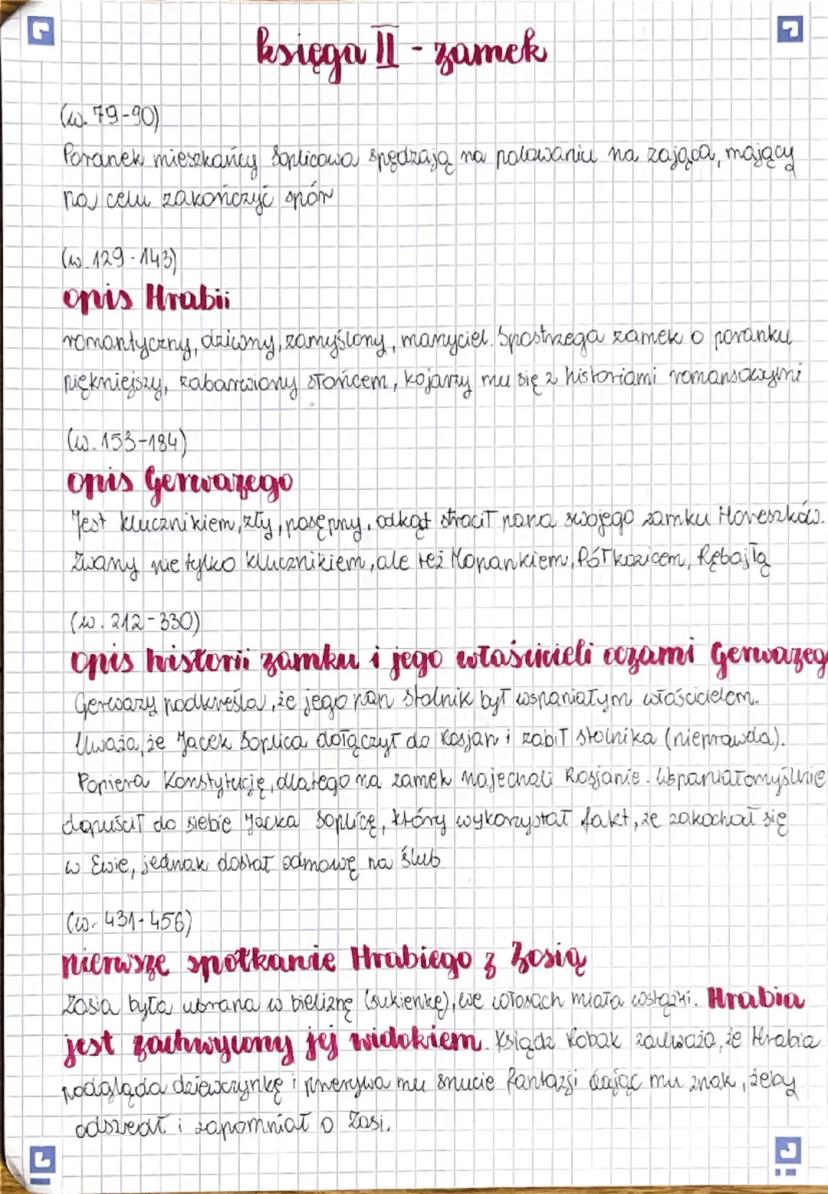 księga II - zamek
(w. 79-90)
Poranek mieszkańcy Soplicowa spędzają na polowaniu na zająca, mający
na celu zakończyć spór
(w. 129-143)
opis Hrabii
romantyczny, dziwny, zamyślony, marzyciel. Spostrzega zamek o poranku
piękniejszy, zabarwiony słońcem, kojarzy mu się z historiami romansowymi
(w. 153-184)
opis Gerwazego
Jest klucznikiem, zły, posępny, odkąt stracił pana swojego zamku Horeszków.
Zwany nie tylko klucznikiem, ale też Mopankiem, Półkozicem, Rębajłą
(w. 212-330)
opis historii zamku i jego właścicieli oczami Gerwazeg
Gerwazy podkreśla, że jego pan Stolnik był wspaniałym właścicielem.
Uważa, że Jacek Soplica dołączył do Rosjan i zabił stolnika (nieprawda).
Popiera Konstytucję, dlatego na zamek najechali Rosjanie. Wspaniałomyślnie
dopuścił do siebie Jacka Soplicę, który wykorzystał fakt, że zakochał się
w Ewie, jednak dostał odmowę na ślub
(w. 431-456)
pierwsze spotkanie Hrabiego z Zosią
Zosia była ubrana w bieliznę (sukienkę), we włosach miała wstążki. Hrabia
jest zachwycony jej widokiem. Ksiądz Robak zauważa, że Hrabia
podgląda dziewczynkę i przerywa mu snucie fantazji dając mu znak, żeby
odszedł i zapomniał o Zosi.